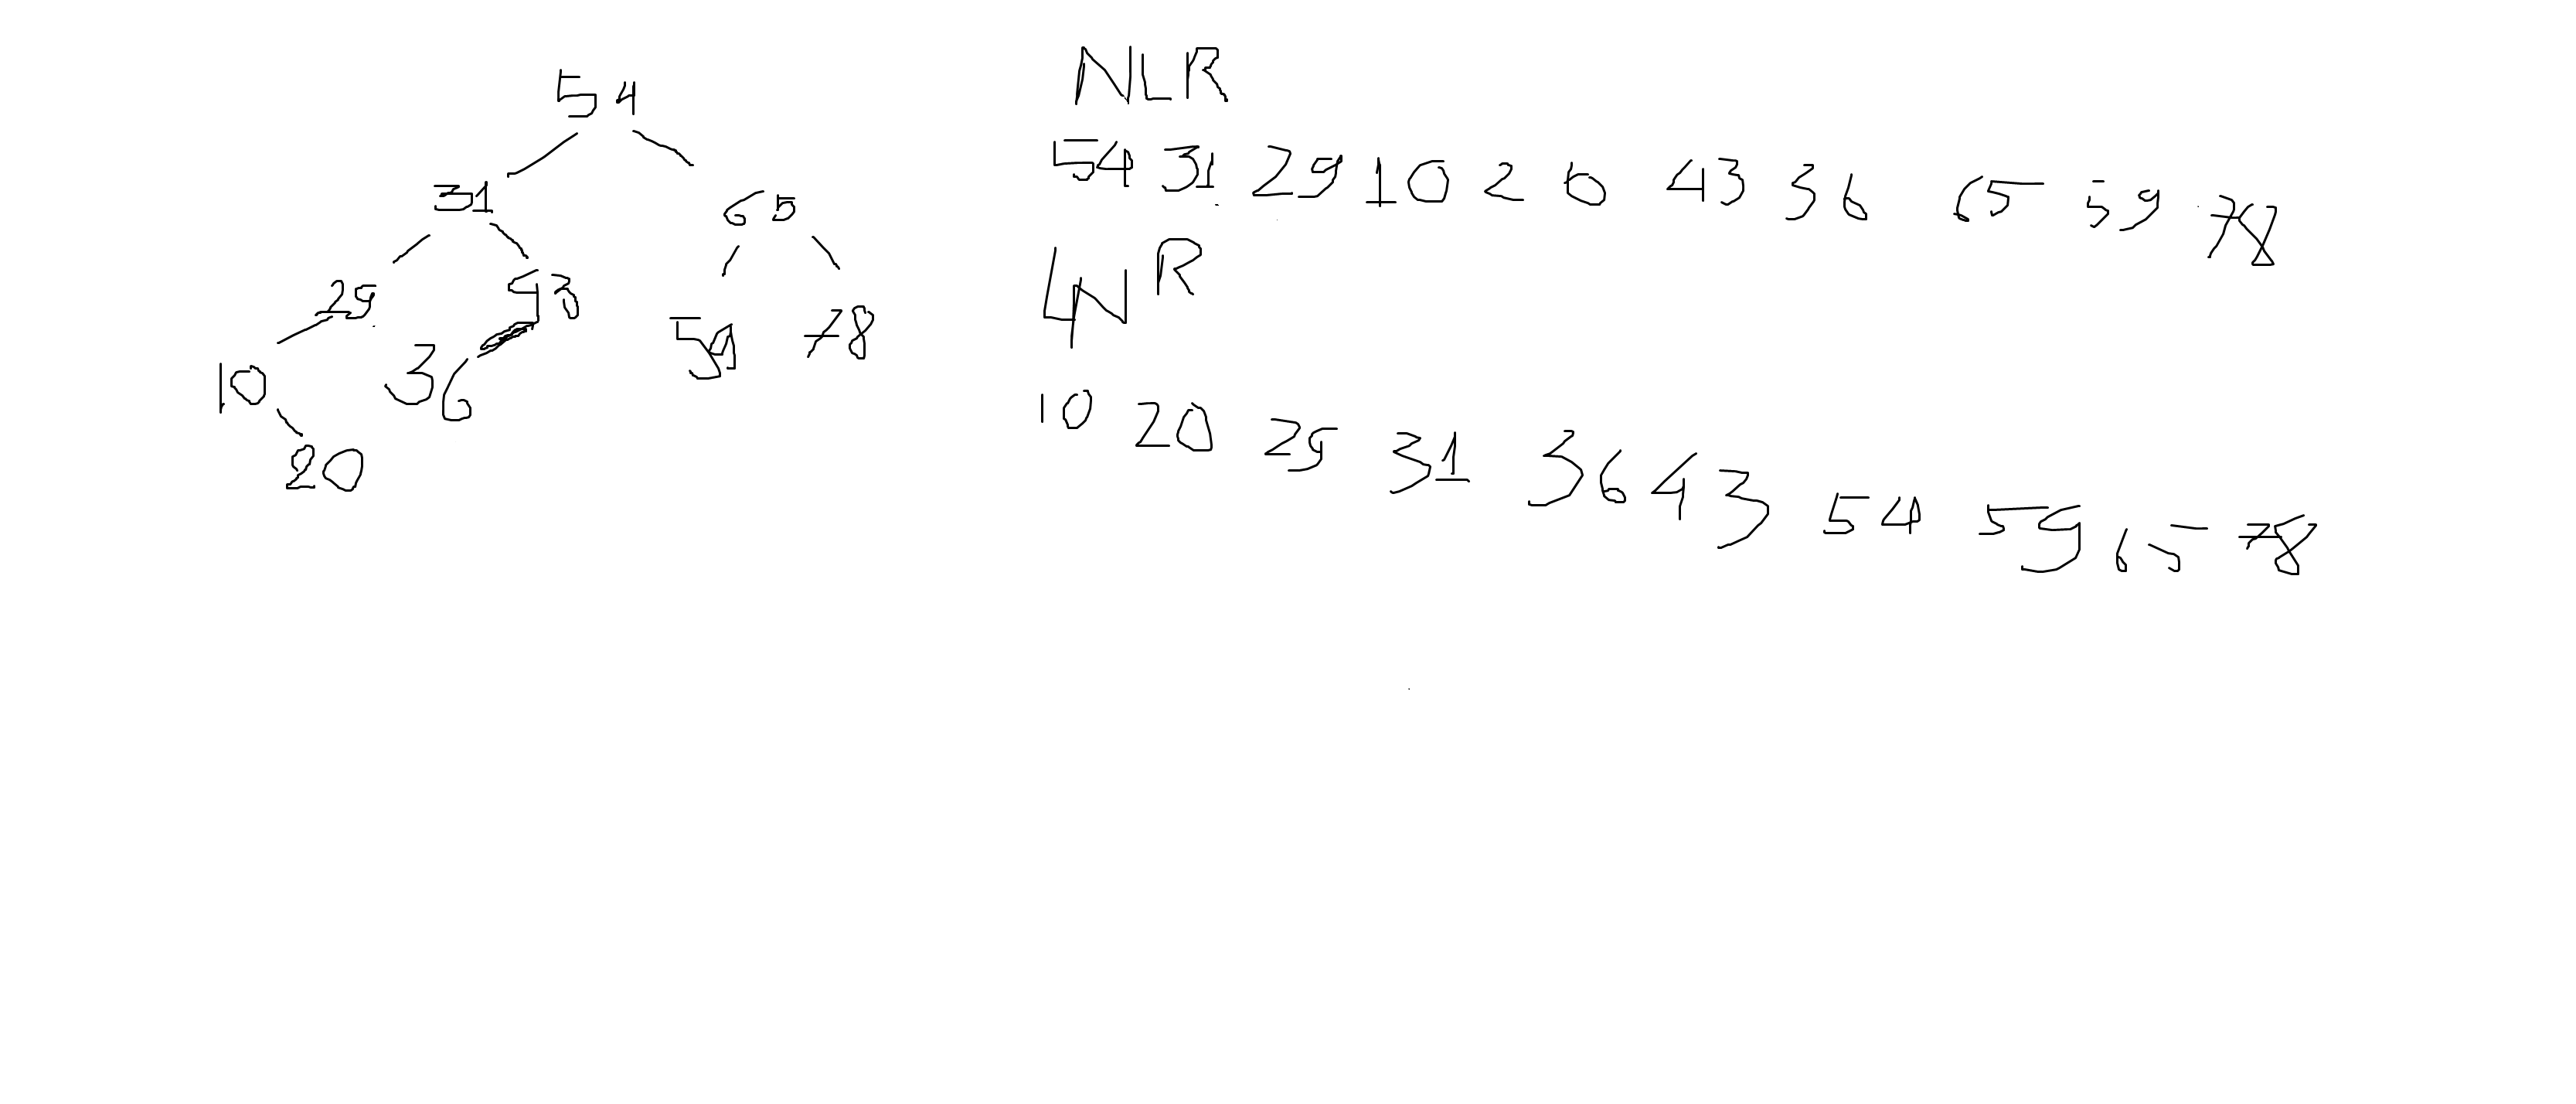 54
31 65
29 43
59 78
10 36
20
NLR
54 31 29 10 20 43 36 65 59 78
LNR
10 20 29 31 36 43 54 59 65 78